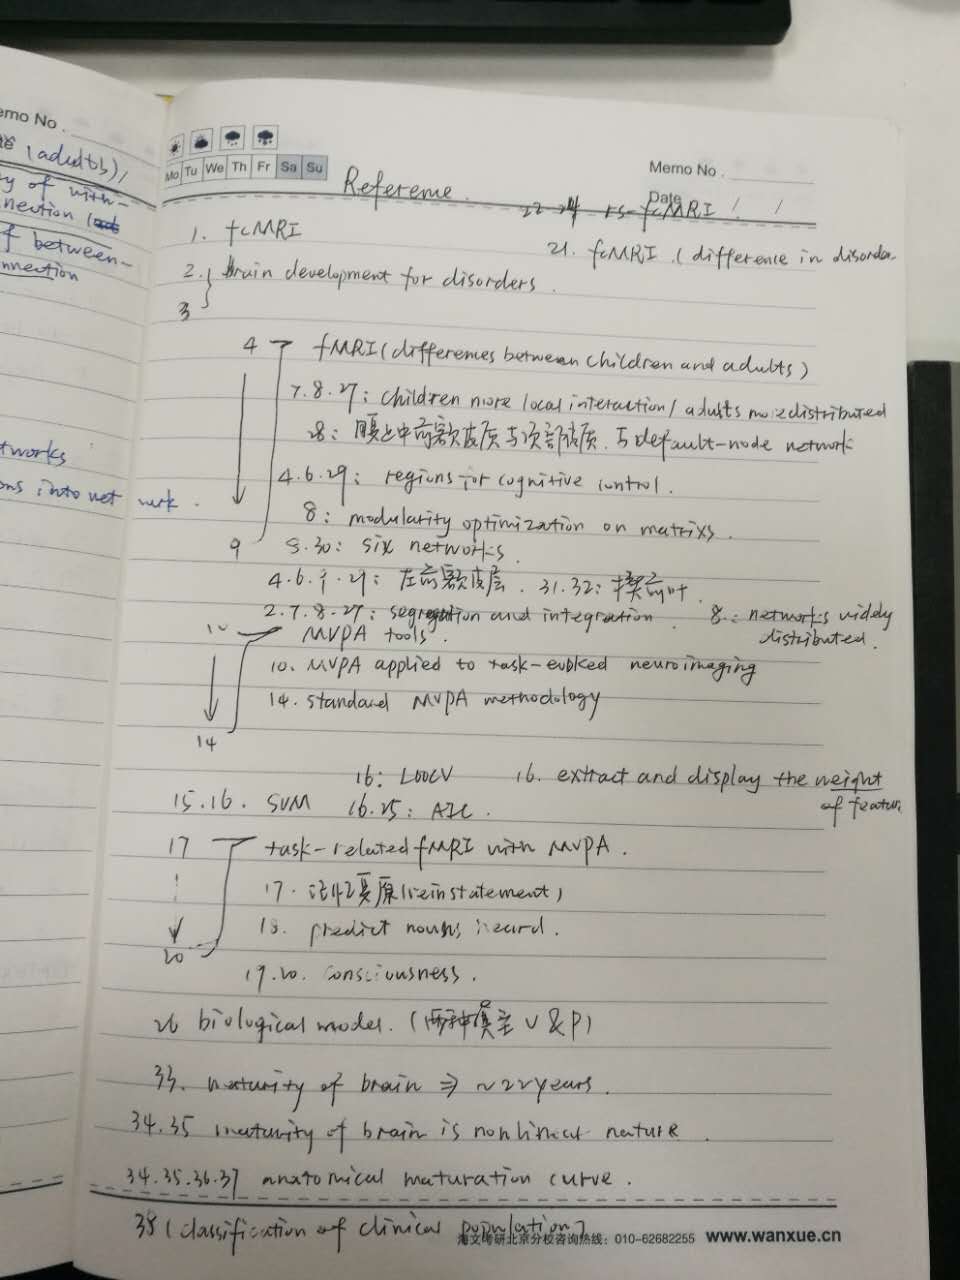 emo No .
(adults),
y of with-
nection
f between-
nnection
tworks
ons into net work .
Mo Tu We Th Fr Sa Su
Memo No .
Date / /
Referene .
22 24 rs-fcMRI
1. fcMRI
21. fcMRI. (difference in disorder
2. brain development for disorders .
3
4 fMRI (differenes between children and adults)
7.8.27: children more local interaction / adults more distributed
28: 腹上中前额皮质与顶部皮质. 与default-node network
4.6.29: regions for cognitive control .
8: modularity optimization on matrixs .
9 8.30: six networks.
4.6. 29: 左前额皮层. 31.32: 楔前叶.
2.7.8.27: segregation and integration . 8.: networks widely
distributed.
10 MVPA tools .
10. MVPA applied to task-evoked neuroimaging
14. standard MVPA methodology
14
16: LOOCV 16. extract and display the weight
of featur
15.16. SVM 16.25: AIC .
17 task-related fMRI with MVPA .
17. 记忆复原(reinstatement)
18. predict nouns heard.
20
19.20. consciousness .
26 biological model. (两种模型 V & P)
33. maturity of brain ⇒ ~22 years.
34.35 maturity of brain is nonlinear nature .
34.35.36.37 anatomical maturation curve .
38 (classification of clinical population)
海文考研北京分校咨询热线：010-62682255 www.wanxue.cn